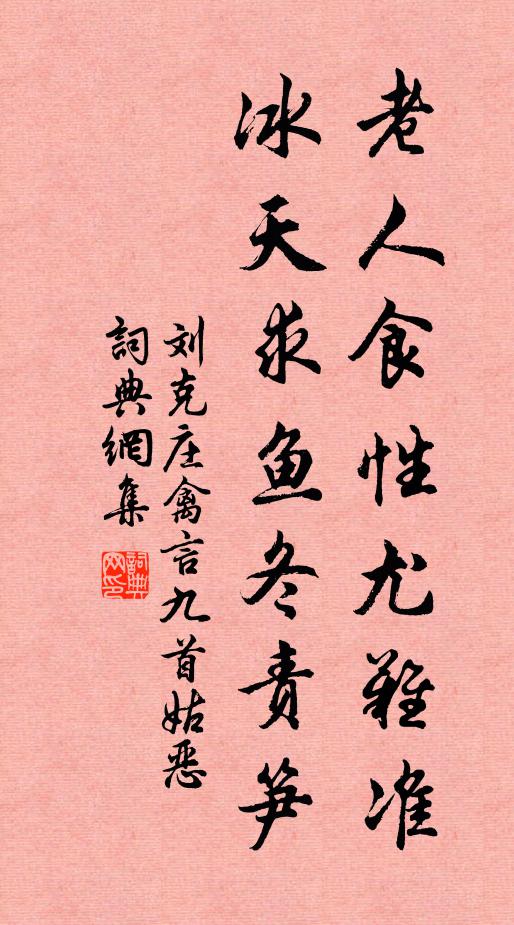 老人食性尤难准
冰天求鱼冬责笋
刘克庄禽言九首姑恶
詞典網集
詞典網印